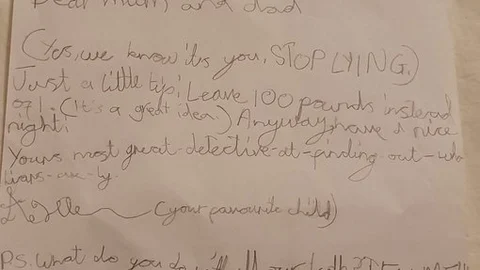 Dear Mum and dad
(Yes, we know its you, STOP LYING.)
Just a little tip: Leave 100 pounds instead
of 1. (It's a great idea.) Anyway, have a nice
night!
Yours most great-detective-at-finding-out-who
liars-are-by-
(your favourite child)
P.S. What do you do with all our teeth?